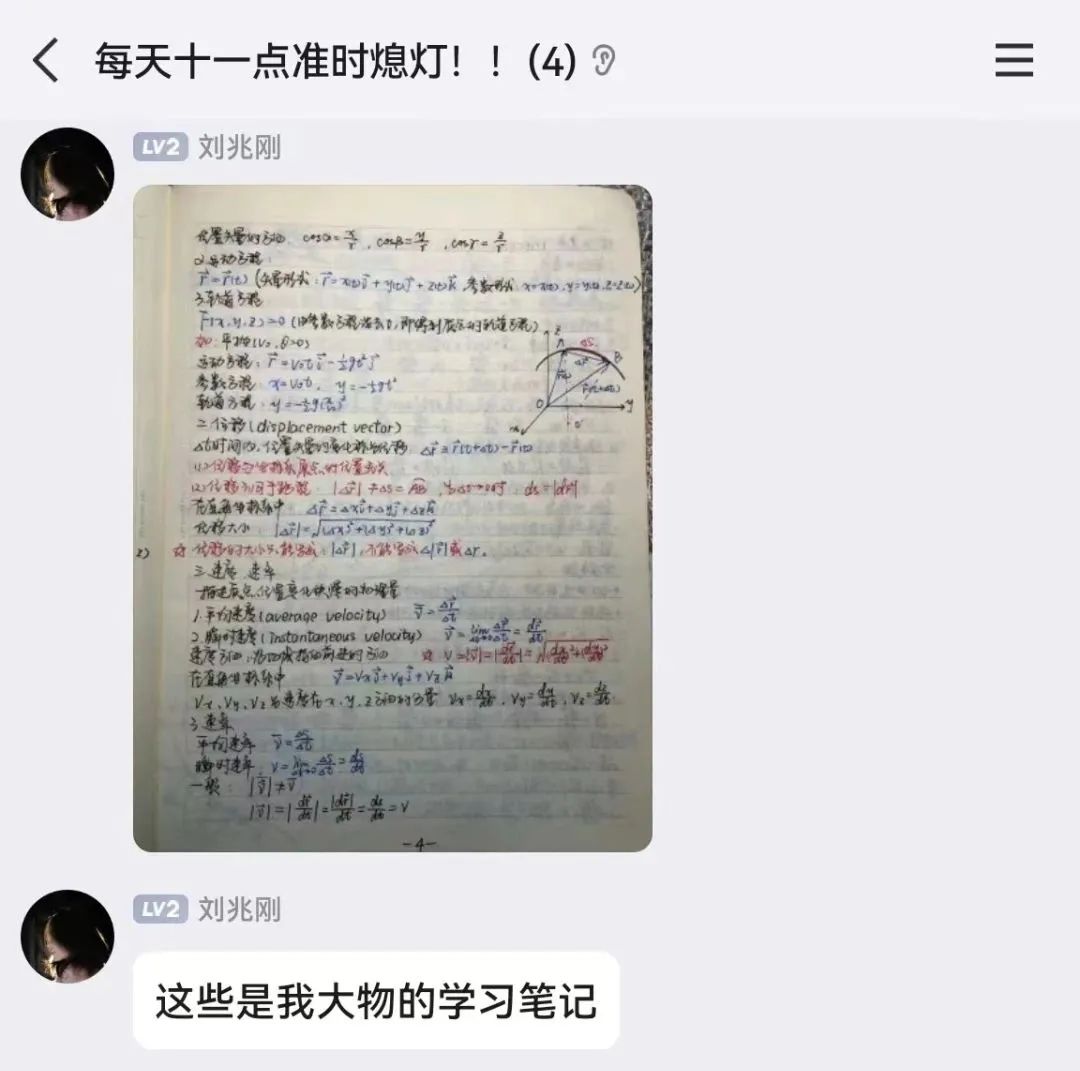 每天十一点准时熄灯！！(4)
LV2 刘兆刚
位置矢量的方向 cosα=x/r , cosβ=y/r , cosγ=z/r
2.运动方程:
r⃗=r⃗(t) (矢量形式: r⃗=x(t)i⃗+y(t)j⃗+z(t)k⃗ 参数形式 x=x(t),y=y(t),z=z(t))
3.轨道方程
F(x,y,z)=0 (由参数方程消去t,即得到质点的轨道方程)
如:平抛(v₀,θ=0)
运动方程: r⃗=v₀ti⃗-½gt²j⃗
参数方程: x=v₀t, y=-½gt²
轨道方程: y=-½g(x/v₀)²
z
A
Δs
B
Δr⃗
r⃗(t)
r⃗(t+Δt)
O
y
x
二.位移(displacement vector)
Δt时间内,位置矢量的变化称为位移 Δr⃗=r⃗(t+Δt)-r⃗(t)
(1)位移与坐标系原点的位置无关
(2)位移不同于路程: |Δr⃗|≠Δs=AB ,当Δs→0时 ds=|dr⃗|
在直角坐标系中 Δr⃗=Δxi⃗+Δyj⃗+Δzk⃗
位移大小 |Δr⃗|=√((Δx)²+(Δy)²+(Δz)²)
☆ 位移的大小只能写成:|Δr⃗|,不能写成Δ|r⃗|或Δr.
三.速度 速率
描述质点位置变化快慢的物理量
1.平均速度(average velocity) v̄⃗=Δr⃗/Δt
2.瞬时速度(instantaneous velocity) v⃗=lim Δt→0 Δr⃗/Δt=dr⃗/dt
速度方向:沿切线指向前进的方向 ☆ v=|v⃗|=|dr⃗/dt|
在直角坐标系中 v⃗=vxi⃗+vyj⃗+vzk⃗
vx、vy、vz为速度在x、y、z方向的分量 vx=dx/dt, vy=dy/dt, vz=dz/dt
3.速率
平均速率 v̄=Δs/Δt
瞬时速率: v=lim Δt→0 Δs/Δt=ds/dt
一般: |v̄⃗|≠v̄
|v⃗|=|dr⃗/dt|=|dr⃗|/dt=ds/dt=v
-4-
LV2 刘兆刚
这些是我大物的学习笔记